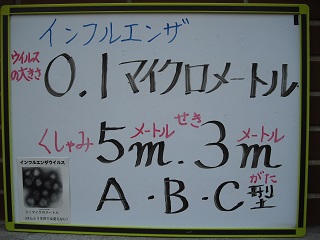 インフルエンザ
ウイルスの大きさ
0.1マイクロメートル
くしゃみ 5m メートル . せき 3m メートル
A・B・C型 がた
インフルエンザウイルス